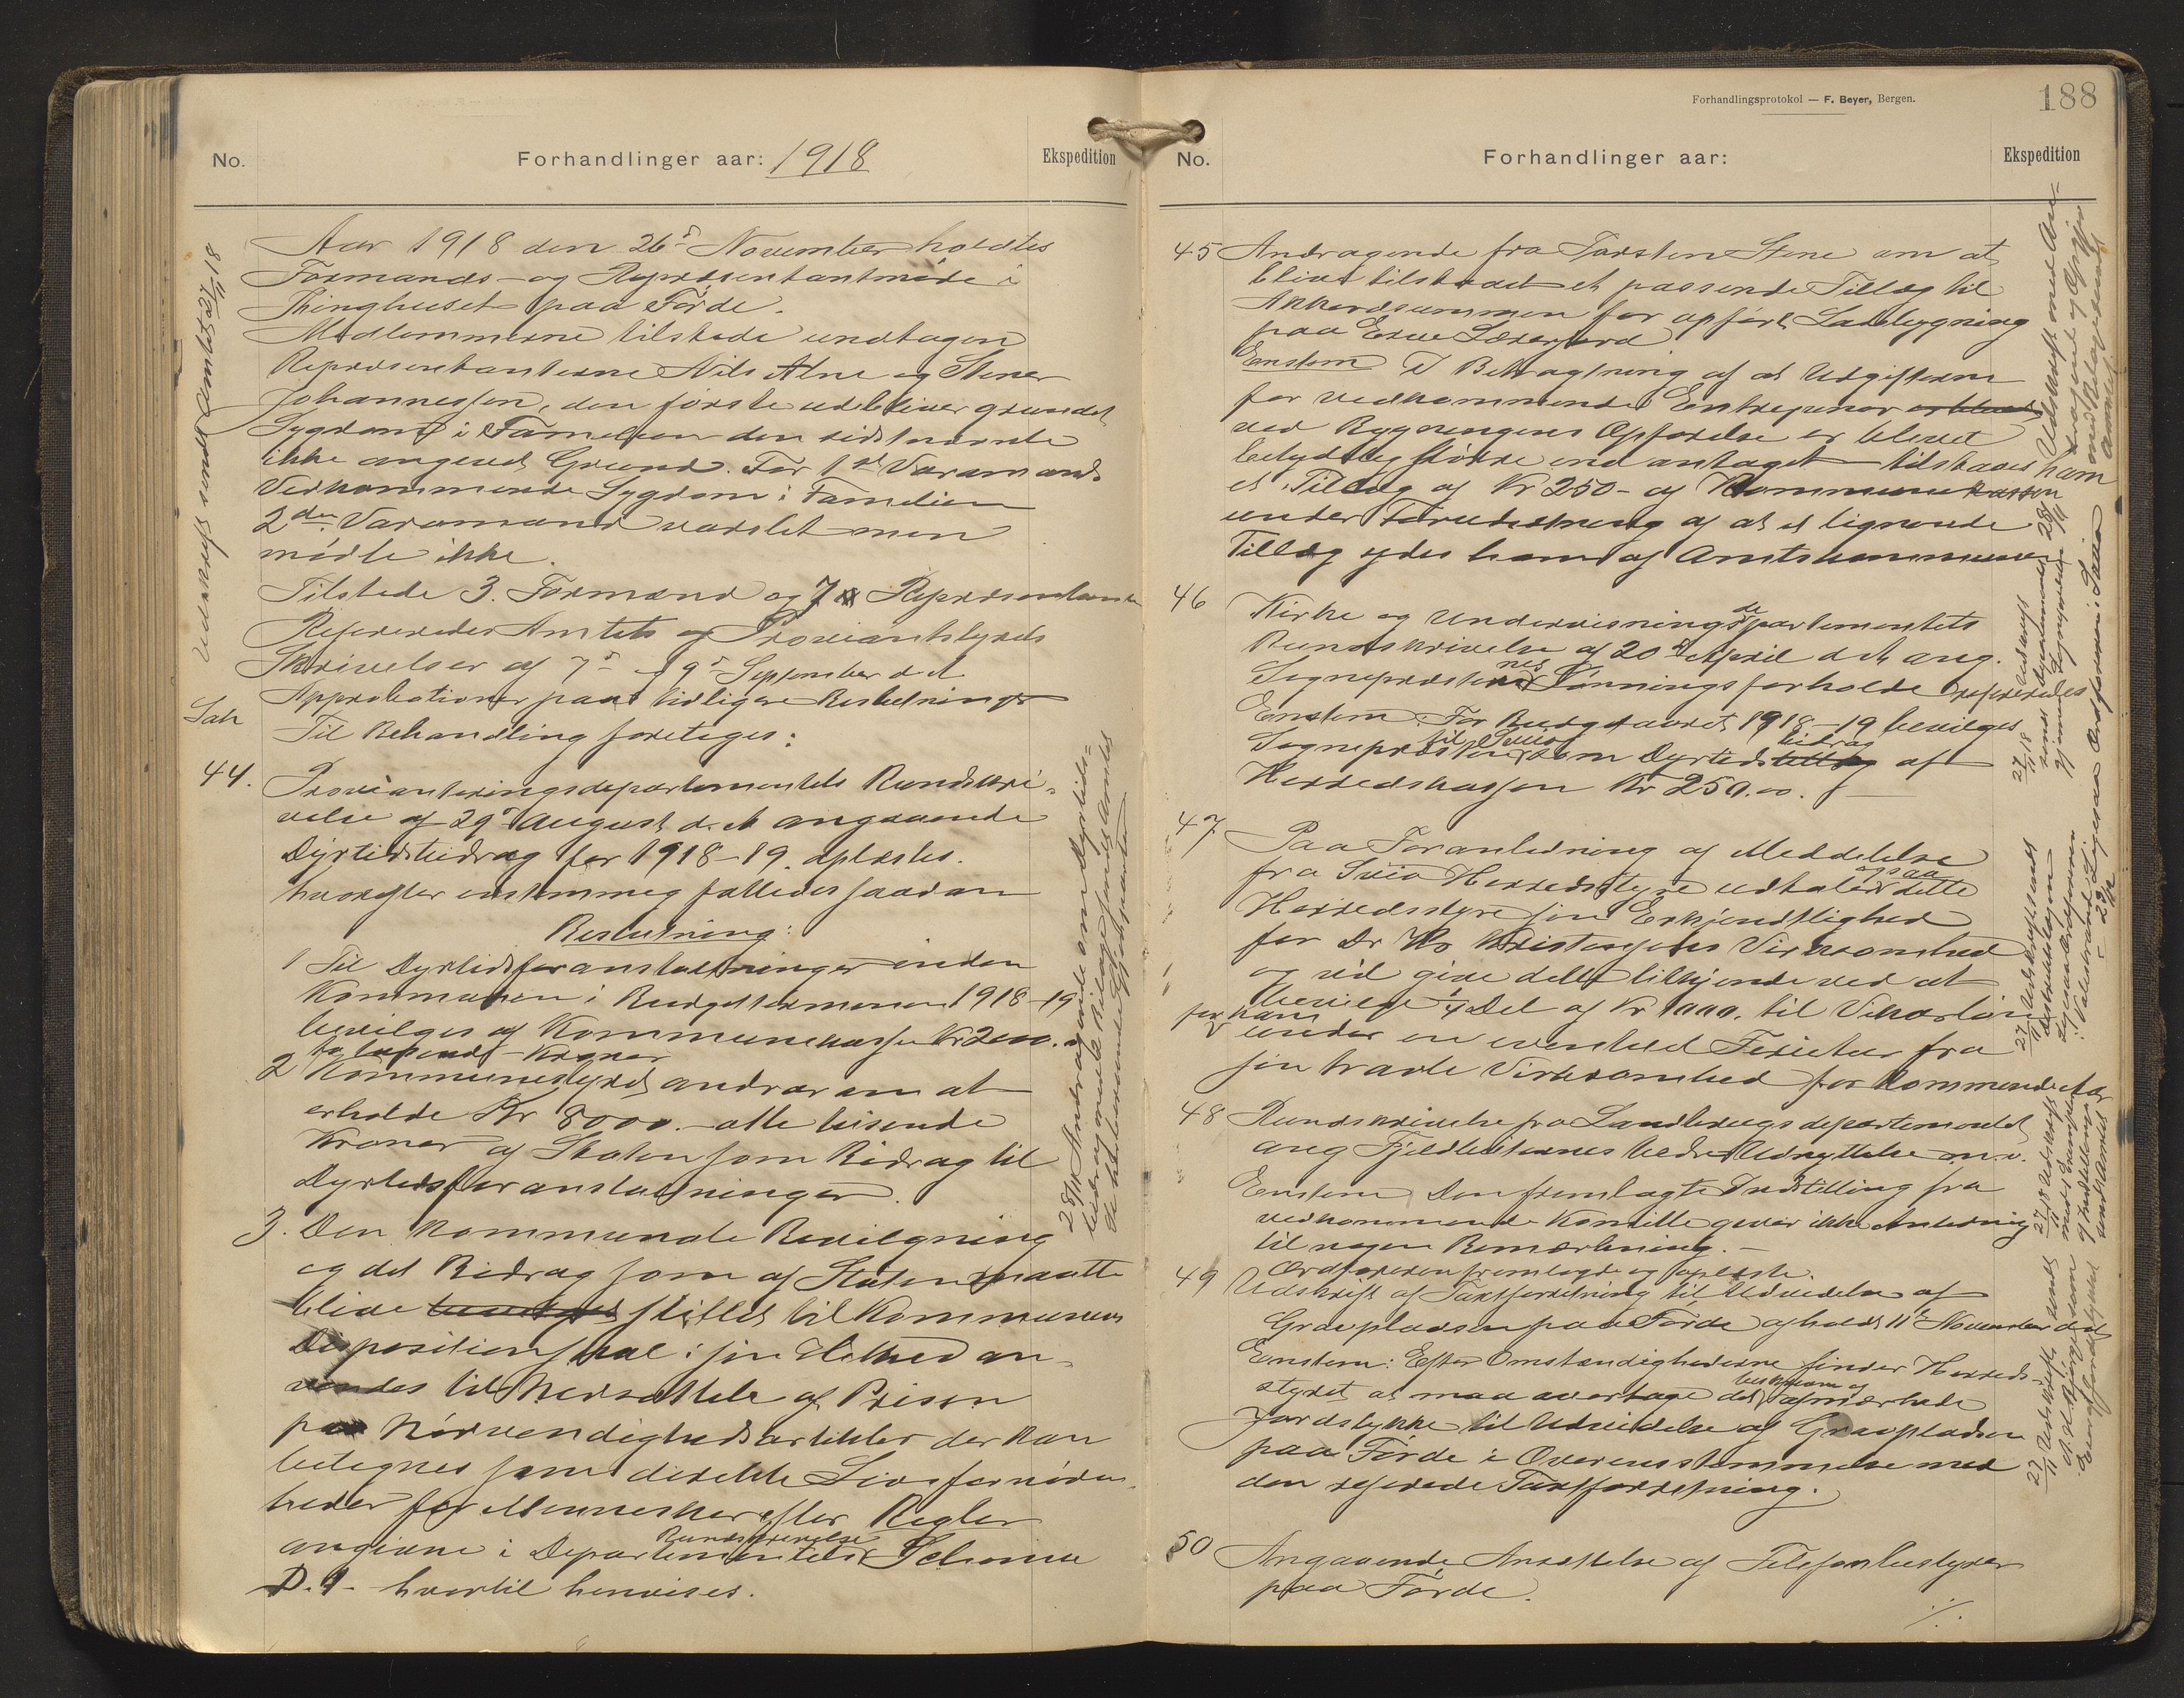 No.
Forhandlinger aar: 1918
Ekspedition
Aar 1918 den 26d November holdtes
Formands- og Repræsentantmøde i
Thinghuset paa Førde.
Medlemmerne tilstede undtagen
Repræsentanterne Nils Alne og Stener
Johannessen, den første udebliver grundet
Sygdom i Familien den sidstnævnte
ikke angivet Grund. For 1ste Varamands
Vedkommende Sygdom i Familien
2den Varamand varslet men
mødte ikke.
Tilstede 3. Formænd og 7 Repræsentanter
Refereredes Amtets og Proviantstyrets
Skrivelser af 7d og 9d September d.A
Approbationer paa tidligere Beslutninger
Sak
Til Behandling foretages:
44. Provianteringsdepartementets Rundskri-
velse af 29d August d.A angaaende
Dyrtidsbidrag for 1918-19. oplæstes.
hvorefter enstemmig fattedes saadan
Beslutning:
1 Til Dyrtidsforanstaltninger inden
Kommunen i Budgetterminen 1918-19
bevilges af Kommunekassen Kr 2000.-
to tusende - Kroner
2 Kommunestyret andrar om at
erholde Kr 8000.- otte tusende
Kroner af Staten som Bidrag til
Dyrtidsforanstaltninger.
3. Den kommunale Bevilgning
og det Bidrag som af Staten maatte
blive bevilget stillet til Kommunens
Disposition skal i sin Helhed an-
vendes til Nedsættelse af Prisen
paa Nødvendighedsartikler der kan
betegnes som direkte Livsfornøden-
heder for Mennesker efter Regler
angivne i Departementets Rundskrivelse Schema
D.1 - hvortil henvises.
Udskrift sendt Amtet 27/11 18
28/11 Andragende om Dyrtids-
bidrag med Bilage sendt Amtet
Forhandlingsprotokol — F. Beyer, Bergen.
188
No.
Forhandlinger aar:
Ekspedition
45 Andragende fra Torsten Stene om at
blive tilstaaet et passende Tillæg til
Akkordsummen for opført Ladebygning
paa
Enstem I Betragtning af at Udgifterne
for vedkommende Entreprenør
ved Bygningens Opførelse er blevet
betydelig større end antaget tilstaaes ham
et Tillæg af Kr 250- af Kommunekassen
under Forudsætning af at et lignende
Tillæg ydes ham af Amtskommunen
46 Kirke og Undervisningsdepartementets
Rundskrivelse af 20d April d.A. ang.
Sogneprestenes Lønningsforholde refereredes
Enstem. For Budgetaaret 1918-19 bevilges
Sognepresten til Sveio som Dyrtidsbidrag af
Herredskassen Kr 250.00.
47 Paa Foranledning af Meddelelse
fra Sveio Herredsstyre udtaler ogsaa dette
Herredsstyre sin Erkjendtlighed
for Dr Kristensens Virksomhed
og vil give dette tilkjende ved at
bevilge 1/4 Del af Kr 1000. til Vikarløn
for ham under en eventuel Ferietur fra
sin travle Virksomhed for kommende Aar
48 Rundskrivelse fra Landbrugsdepartementet
ang Fjeldbeiternes bedre Udnyttelse m.v.
Enstem. Den fremlagte Indstilling fra
vedkommende Komitte gav ikke Anledning
til nogen Bemærkning.-
49 Ordføreren fremlagde og oplæste.
Udskrift af Taxtforretning til Udvidelse af
Gravpladsen paa Førde afholdt 11te November d.A
Enstem: Efter Omstændighederne finder Herreds-
styret at maa overtage det beskrevne og afmærkede
Jordstykke til Udvidelse af Gravpladsen
paa Førde i Overensstemmelse med
den refererede Taxtforretning.
50 Angaaende Ansættelse af Telefonbestyrer
paa Førde.
./.
27/11 18 Udskrift
27/11 Udskrift sendt
27/11 18 Udskrift
27/11 Udskrift sendt